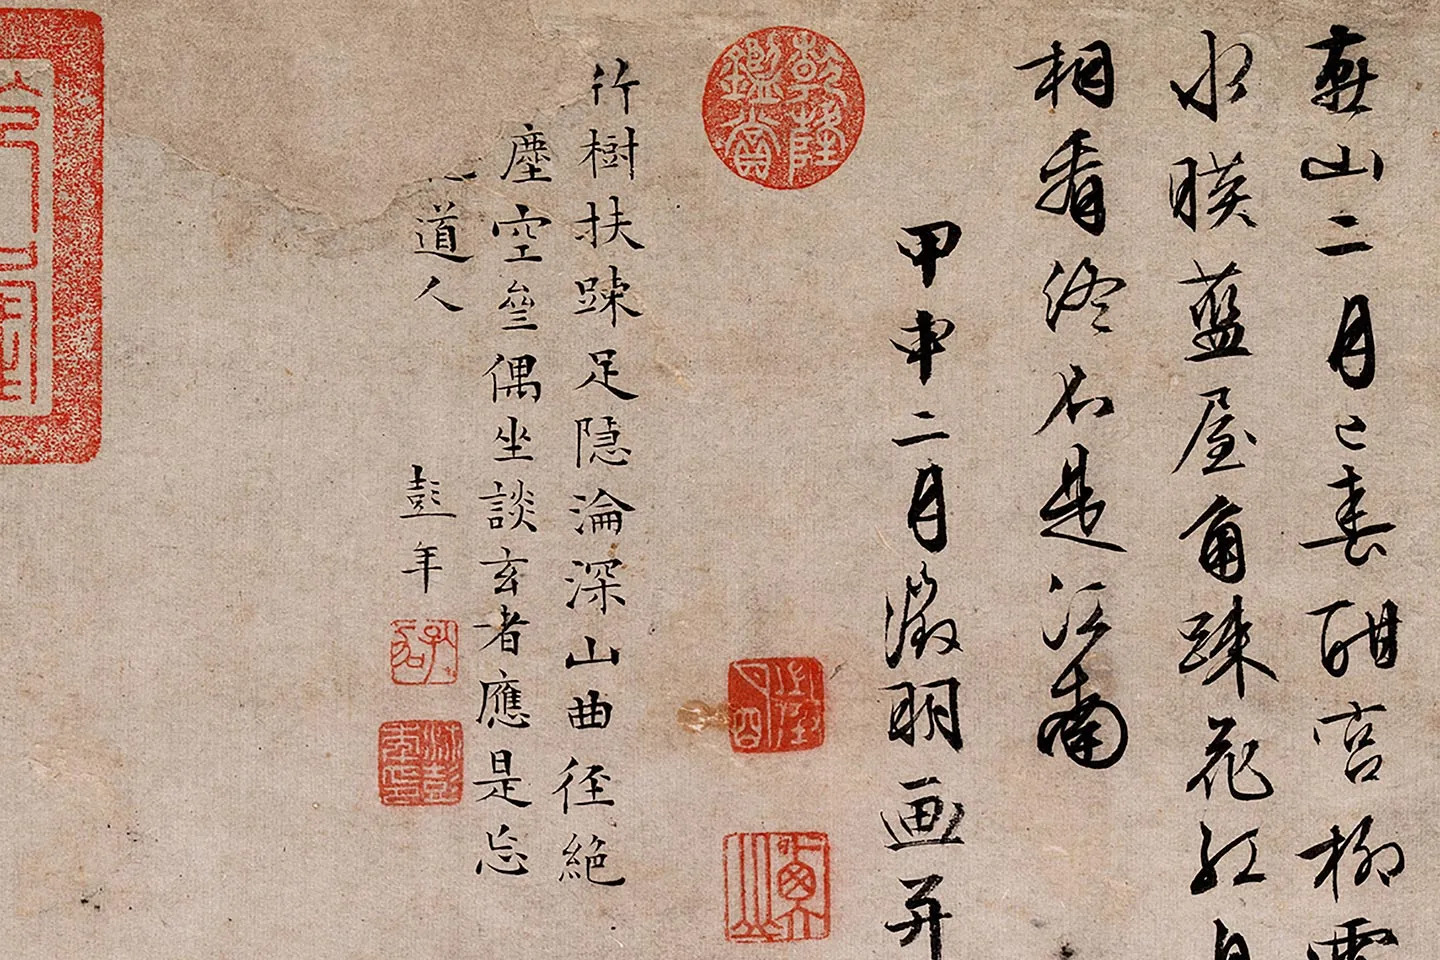 燕山二月已春酣宮柳
水暎藍屋角踈花紅自
相看終不是江南
甲申二月徵明画并
乾隆鑑賞
竹樹扶踈足隱淪深山曲徑絕
塵空叄偶坐談玄者應是忘
道人 彭年